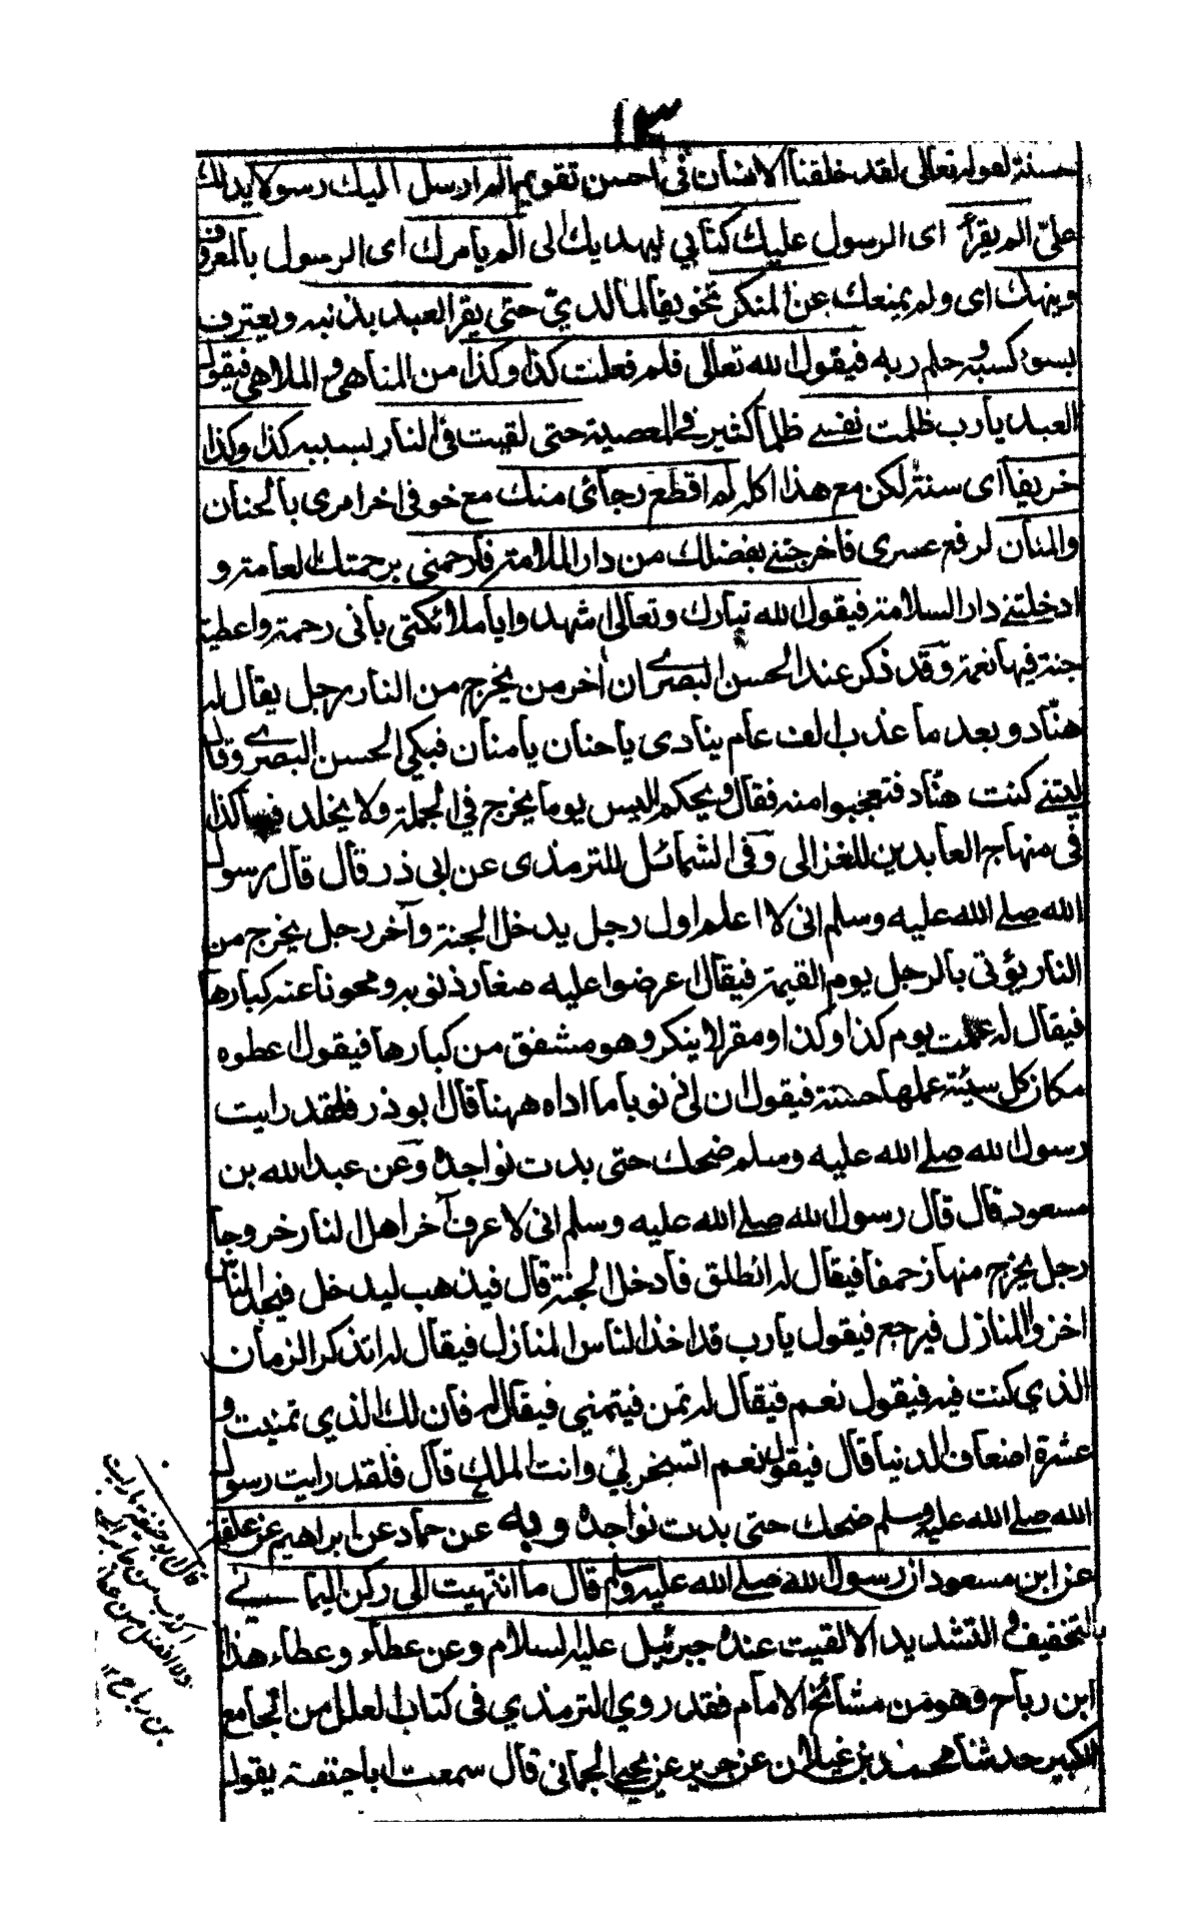 ١٣
حسنة لقوله تعالى لقد خلقنا الانسان في احسن تقويم الم ارسل اليك رسولا يدلك
عليّ الم يقرأ اى الرسول عليك كتابي ليهديك الى الم يامرك اى الرسول بالمعروف
وينهك اى ولم يمنعك عن المنكر تخويفا لما لديّ حتى يقر العبد بذنبه ويعترف
بسوء كسبه وحلم ربه فيقول الله تعالى فلم فعلت كذا وكذا من المناهي والملاهي فيقول
العبد يارب ظلمت نفسي ظلما كثيرا في المعصية حتى لقيت في النار بسببه كذا وكذا
خريفا اى سنة لكن مع هذا كله لم اقطع رجائي منك مع خوفي اخر امرى يا لحنان
والمنان لرفع عسرى فاخرجتني بفضلك من دار الملامة فارحمني برحمتك العامة و
ادخلتني دار السلامة فيقول الله تبارك وتعالى اشهدوا ياملائكتي باني رحمته واعطيته
جنة فيها نعمة وقد ذكر عند الحسن البصري ان اخر من يخرج من النار رجل يقال له
هنّاد وبعد ما عذب الف عام ينادى ياحنان يامنان فبكى الحسن البصري وقال
ليتني كنت هنّاد فتعجبوا منه فقال ويحكم اليس يوما يخرج في الجملة ولا يخلد فيها كذا
في منهاج العابدين للغزالى وفي الشمائل للترمذى عن ابي ذر قال قال رسول
الله صلى الله عليه وسلم اني لا اعلم اول رجل يدخل الجنة وآخر رجل يخرج من
النار يؤتى بالرجل يوم القيمة فيقال اعرضوا عليه صغار ذنوبه ومحونا عنه كبارها
فيقال له عملت يوم كذا وكذا ومقر لا ينكر وهو مشفق من كبارها فيقول اعطوه
مكان كل سيئة عملها حسنة فيقول ان لي ذنوبا ما اداه ههنا قال ابوذر فلقد رايت
رسول الله صلى الله عليه وسلم ضحك حتى بدت نواجذه وعن عبد الله بن
مسعود قال قال رسول الله صلى الله عليه وسلم اني لا عرف آخر اهل النار خروجا
رجل يخرج منها زحفا فيقال له انطلق فادخل الجنة قال فيذهب ليدخل فيجد الناس
اخذوا المنازل فيرجع فيقول يارب قد اخذ الناس المنازل فيقال له اتذكر الزمان
الذي كنت فيه فيقول نعم فيقال له تمن فيتمنى فيقال له فان لك الذي تمنيت و
عشرة اضعاف الدنيا قال فيقول نعم اتسخر بي وانت الملك قال فلقد رايت رسول
الله صلى الله عليه وسلم ضحك حتى بدت نواجذه وبه عن حماد عن ابراهيم عن علقمة
عن ابن مسعود ان رسول الله صلى الله عليه وسلم قال ما انتهيت الى ركن اليماني
بالتخفيف والتشديد الا لقيت عنده جبرئيل عليه السلام وعن عطاء وعطاء هذا
ابن رباح وهو من مشائخ الامام فقد روي الترمذي في كتاب العلل من الجامع
الكبير حدثنا محمد بن غيلان عن جرير عن يحيى الحماني قال سمعت ابا حنيفة يقول
قال ابو حنيفة مارايت
اكذب من جابر
ولا افضل من عطاء
بن رباح ١٢